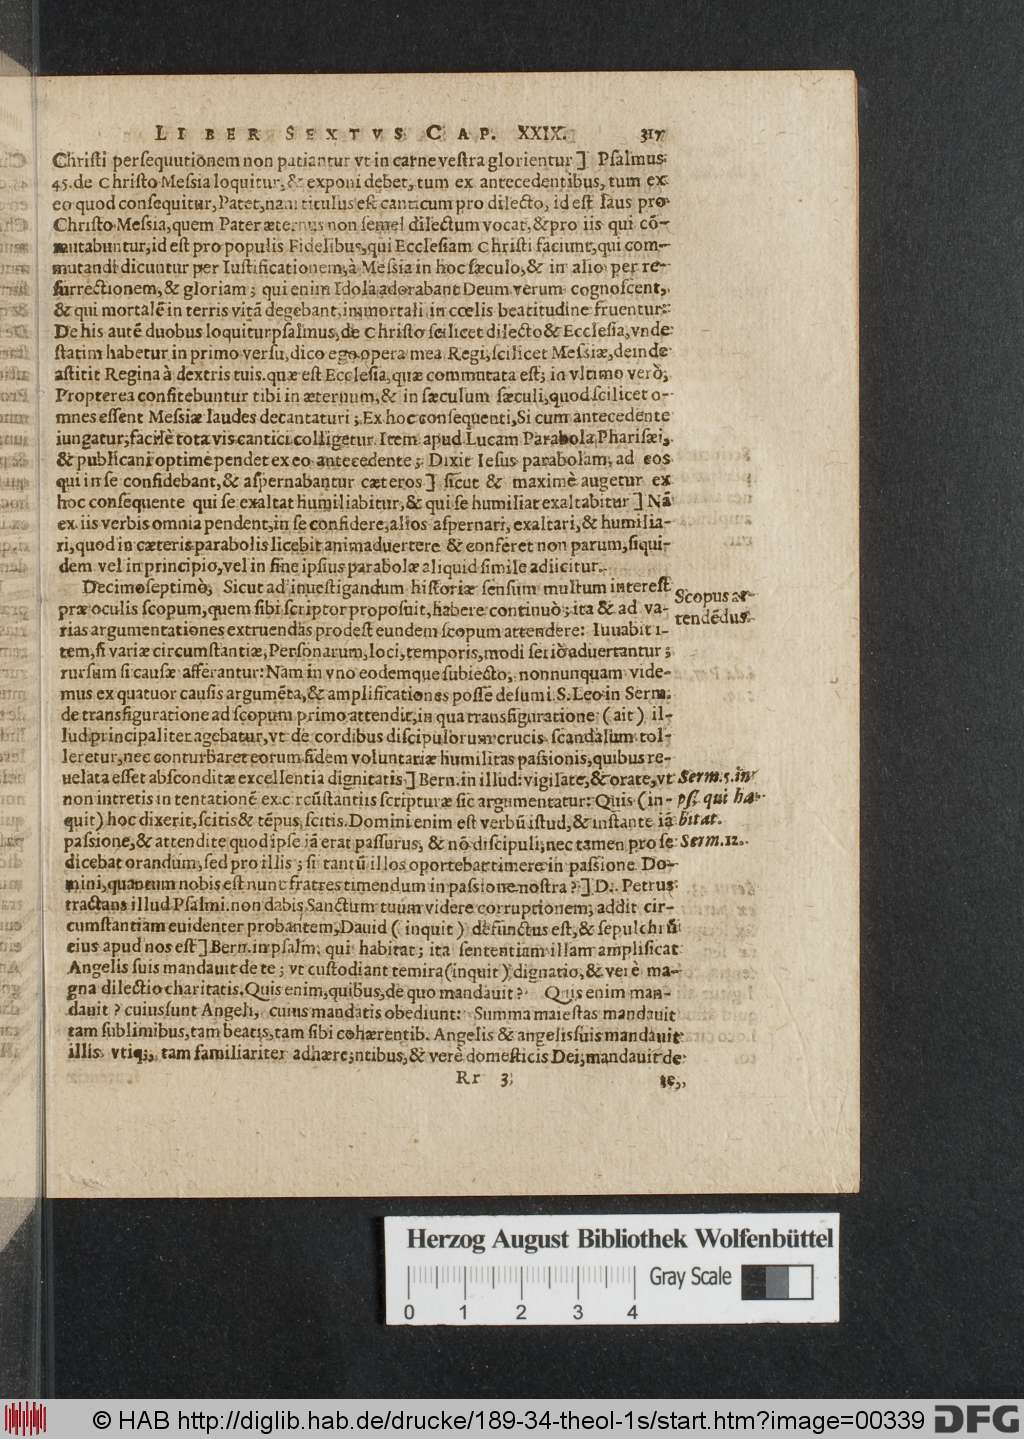 LIBER SEXTVS CAP. XXIX. 317
Christi persequutionem non patiantur vt in carne vestra glorientur] Psalmus
45. de Christo Messia loquitur, & exponi debet, tum ex antecedentibus, tum ex
eo quod consequitur, Patet, nam titulus est canticum pro dilecto, id est laus pro
Christo Messia, quem Pater æternus non semel dilectum vocat, & pro iis qui cō-
mutabuntur, id est pro populis Fidelibus, qui Ecclesiam Christi faciunt, qui com-
mutandi dicuntur per Iustificationem, à Messia in hoc sæculo, & in alio per re-
surrectionem, & gloriam; qui enim Idola adorabant Deum verum cognoscent,
& qui mortalē in terris vitā degebant, immortali in cœlis beatitudine fruentur:
De his autē duobus loquitur psalmus, de Christo scilicet dilecto & Ecclesia, vnde
statim habetur in primo versu, dico ego opera mea Regi, scilicet Messiæ, deinde
astitit Regina à dextris tuis. quæ est Ecclesia, quæ commutata est; in vltimo verò,
Propterea confitebuntur tibi in æternum, & in sæculum sæculi, quod scilicet o-
mnes essent Messiæ laudes decantaturi; Ex hoc consequenti, Si cum antecedente
iungatur, facilè tota vis cantici colligetur. Item apud Lucam Parabola Pharisæi,
& publicani optimè pendet ex eo antecedente; Dixit Iesus parabolam, ad eos
qui in se confidebant, & aspernabantur cæteros] sicut & maximè augetur ex
hoc consequente qui se exaltat humiliabitur, & qui se humiliat exaltabitur] Nā
ex iis verbis omnia pendent, in se confidere, alios aspernari, exaltari, & humilia-
ri, quod in cæteris parabolis licebit animaduertere & conferet non parum, siqui-
dem vel in principio, vel in fine ipsius parabolæ aliquid simile adiicitur.
Decimoseptimò, Sicut ad inuestigandum historiæ sensum multum interest
præ oculis scopum, quem sibi scriptor proposuit, habere continuò; ita & ad va-
Scopus at-
tendēdus.
rias argumentationes extruendas prodest eundem scopum attendere: Iuuabit i-
tem, si variæ circumstantiæ, Personarum, loci, temporis, modi seriò aduertantur;
rursum si causæ afferantur: Nam in vno eodemque subiecto, nonnunquam vide-
mus ex quatuor causis argumēta, & amplificationes posse desumi. S. Leo in Serm.
de transfiguratione ad scopum primo attendit, in qua transfiguratione (ait) il-
lud principaliter agebatur, vt de cordibus discipulorum crucis scandalum tol-
leretur, nec conturbaret eorum fidem voluntariæ humilitas passionis, quibus re-
uelata esset absconditæ excellentia dignitatis] Bern. in illud: vigilate, & orate, vt
Serm. 5. in
non intretis in tentationē ex circūstantiis scripturæ sic argumentatur: Quis (in-
ps. qui ha-
quit) hoc dixerit, scitis & tēpus, scitis. Domini enim est verbū istud, & instante iā
bitat.
passione, & attendite quod ipse iā erat passurus, & nō discipuli; nec tamen pro se
Serm. 12.
dicebat orandum, sed pro illis; si tantū illos oportebat timere in passione Do-
mini, quantum nobis est nunc fratres timendum in passione nostra?] D. Petrus
tractans illud Psalmi. non dabis Sanctum tuum videre corruptionem, addit cir-
cumstantiam euidenter probantem, Dauid (inquit) defunctus est, & sepulchrū
eius apud nos est] Bern. in psalm. qui habitat; ita sententiam illam amplificat
Angelis suis mandauit de te; vt custodiant te mira (inquit) dignatio, & verè ma-
gna dilectio charitatis. Quis enim, quibus, de quo mandauit? Quis enim man-
dauit? cuius sunt Angeli, cuius mandatis obediunt: Summa maiestas mandauit
tam sublimibus, tam beatis, tam sibi cohærentib. Angelis & angelis suis mandauit
illis vtiq;, tam familiariter adhærentibus, & verè domesticis Dei, mandauit de
Rr 3 te,
Herzog August Bibliothek Wolfenbüttel
Gray Scale
0 1 2 3 4
© HAB http://diglib.hab.de/drucke/189-34-theol-1s/start.htm?image=00339 DFG